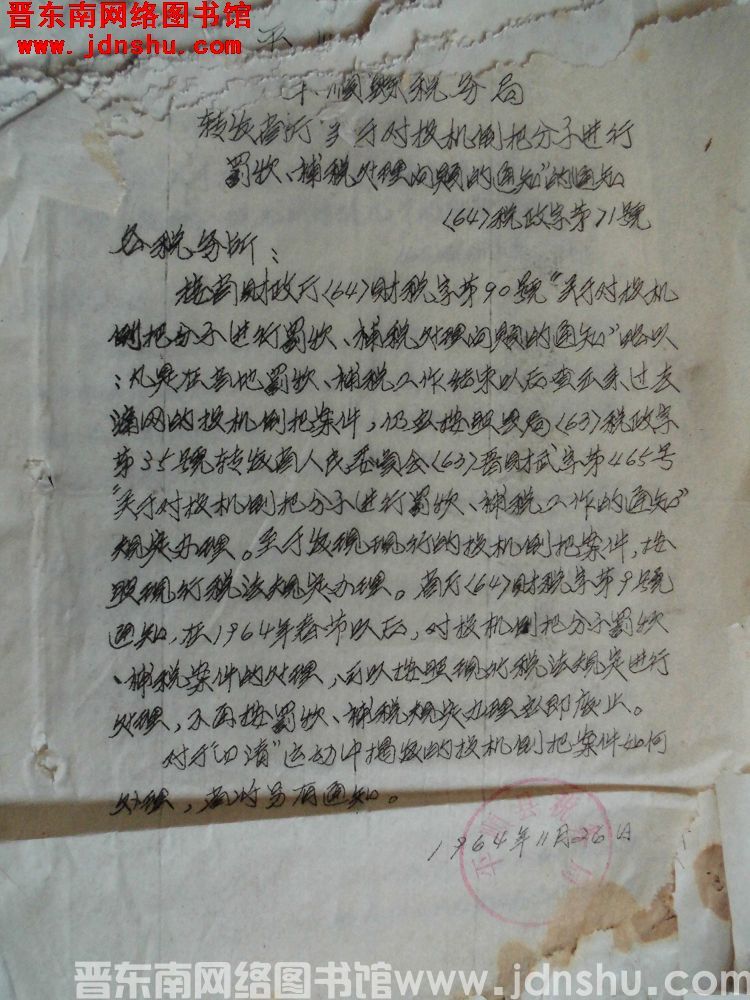 晋东南网络图书馆
www.jdnshu.com
平顺
平顺县税务局
转发省厅“关于对投机倒把分子进行
罚款、补税处理问题的通知”的通知
〈64〉税政字第71號
各税务所：
接省财政厅〈64〉财税字第90號“关于对投机
倒把分子进行罚款、补税处理问题的通知”略以
：凡是在当地罚款、补税工作结束以后查出来过去
漏网的投机倒把案件，仍应按照县局〈63〉税政字
第35號转发省人民委员会〈63〉晋财武字第465号
“关于对投机倒把分子进行罚款、补税工作的通知”
规定办理。至于发现现行的投机倒把案件，按
照现行税法规定办理。省厅〈64〉财税字第9號
通知，在1964年春节以后，对投机倒把分子罚款
、补税案件的处理，可以按照现行税法规定进行
处理，不再按罚款、补税规定办理立即废止。
对于“四清”运动中揭发的投机倒把案件如何
处理，省时另有通知。
1964年11月26日
平顺县
晋东南网络图书馆www.jdnshu.com